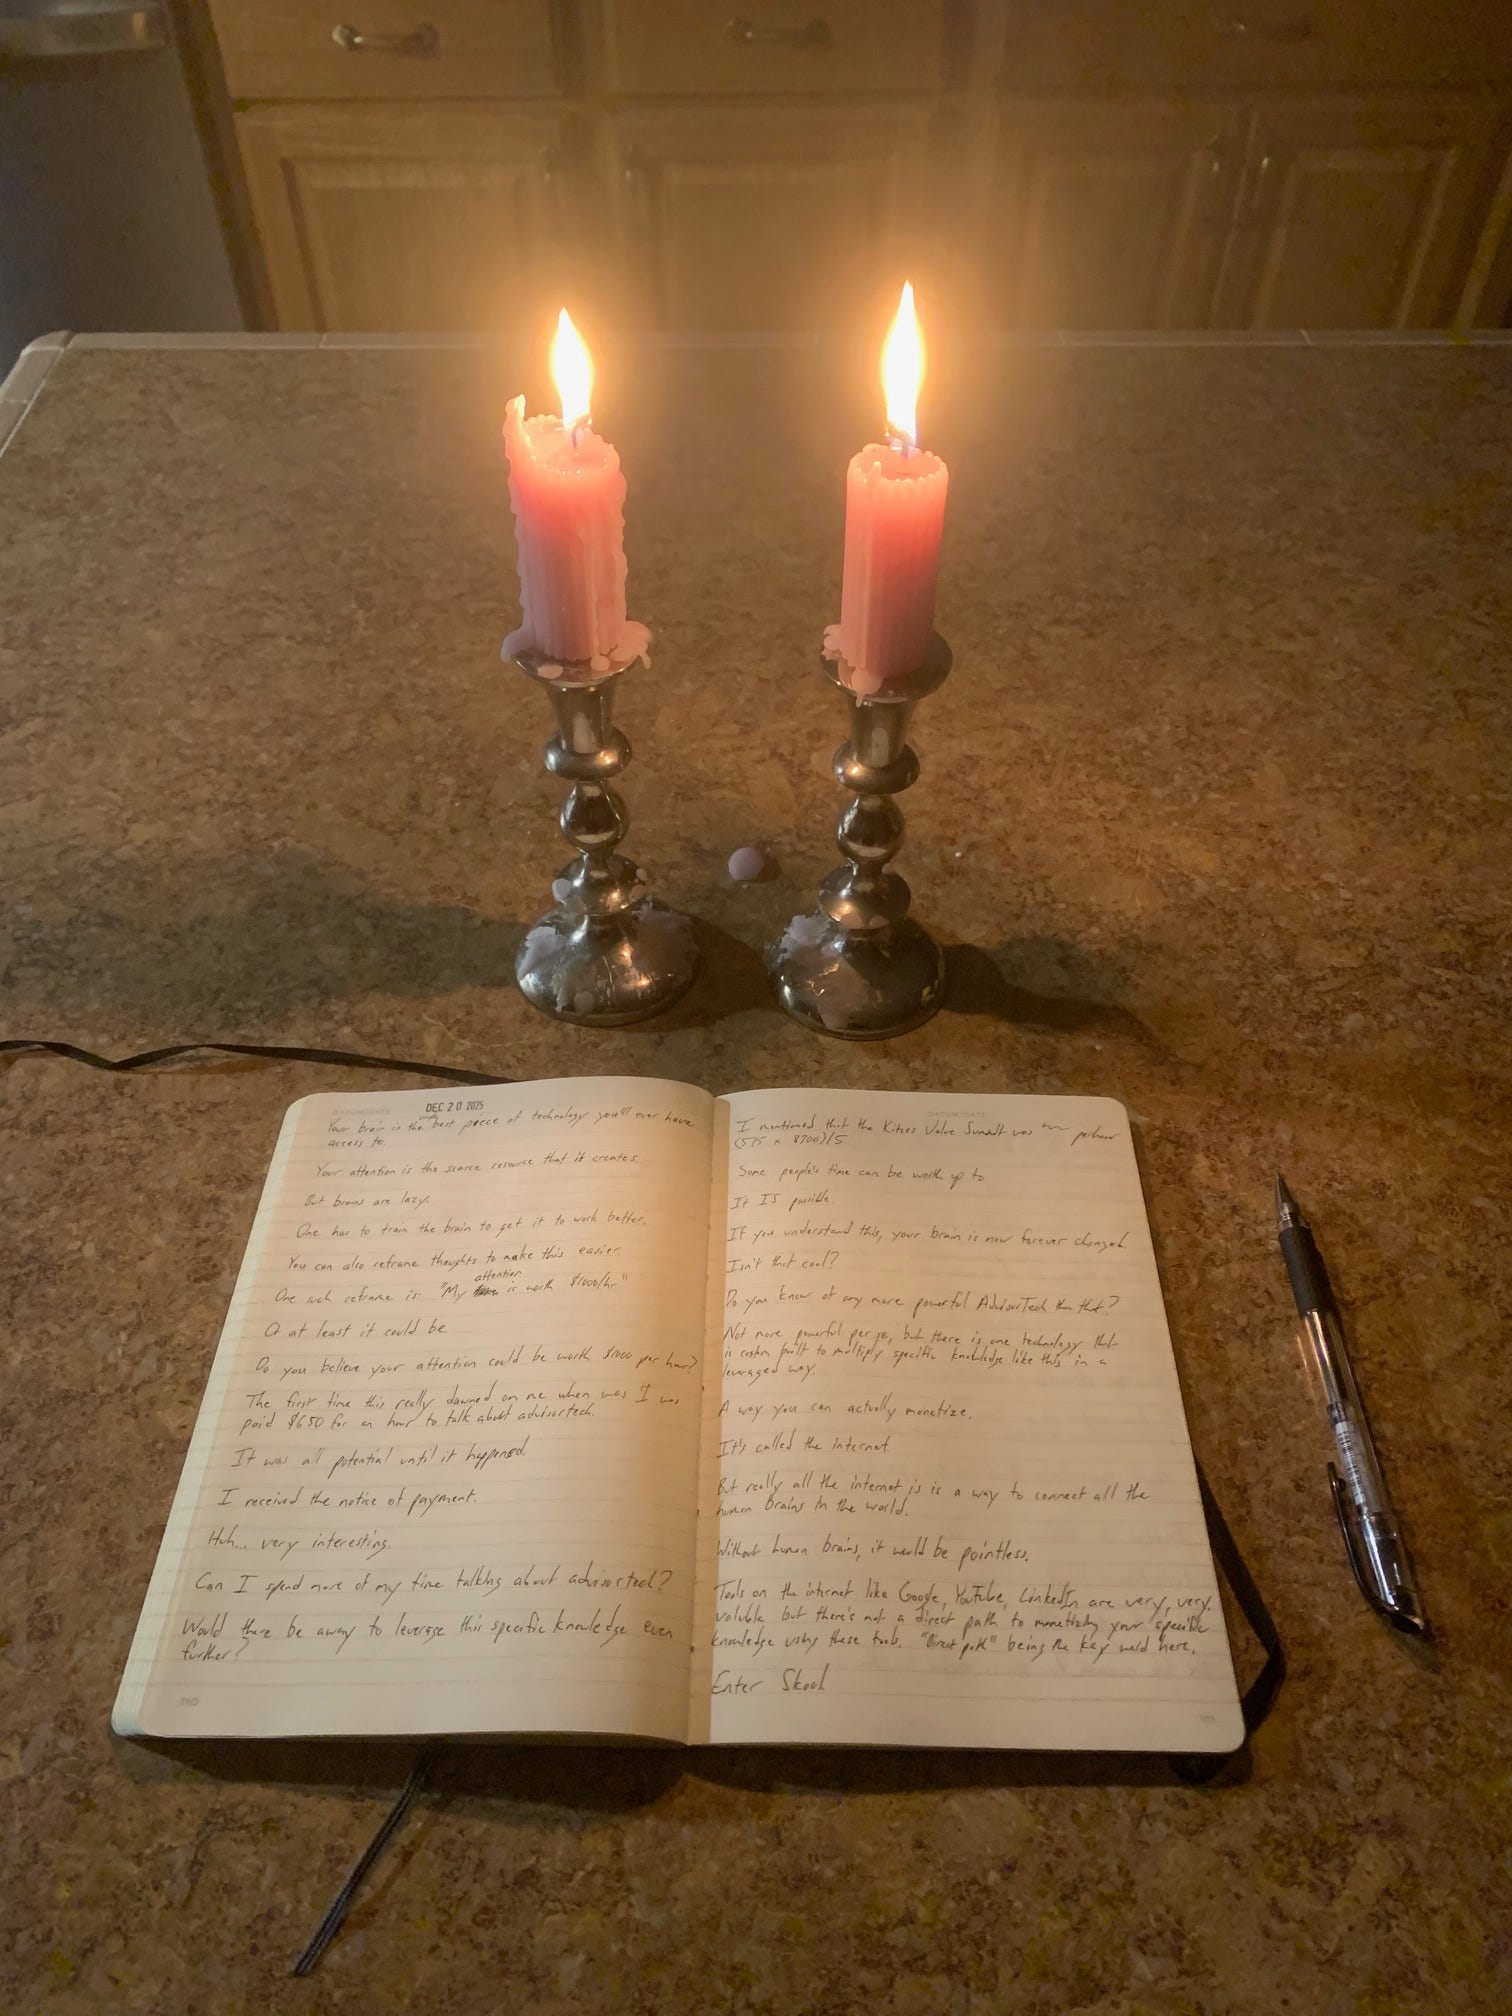 DEC 20 2025
simply
Your brain is the best piece of technology you'll ever have
access to.
Your attention is the scarce resource that it creates.
But brains are lazy.
One has to train the brain to get it to work better.
You can also reframe thoughts to make this easier.
attention
One such reframe is: "My is worth $1000/hr"
Or at least it could be.
Do you believe your attention could be worth $1000 per hour?
The first time this really dawned on me when was I was
paid $650 for an hour to talk about advisortech.
It was all potential until it happened.
I received the notice of payment.
Huh... very interesting.
Can I spend more of my time talking about advisortech?
Would there be away to leverage this specific knowledge even
further?
I mentioned that the Kitces Value Summit was per hour
(575 x $300)/5
Some people's time can be worth up to
It IS possible.
If you understand this, your brain is now forever changed.
Isn't that cool?
Do you know of any more powerful AdvisorTech than that?
Not more powerful per se, but there is one technology that
is custom built to multiply specific knowledge like this in a
leveraged way.
A way you can actually monetize.
It's called the internet.
But really all the internet is is a way to connect all the
human brains in the world.
Without human brains, it would be pointless.
Tools on the internet like Google, YouTube, LinkedIn are very, very
valuble but there's not a direct path to monetizing your specific
knowledge using these tools. "Direct path" being the key word here.
Enter Skool